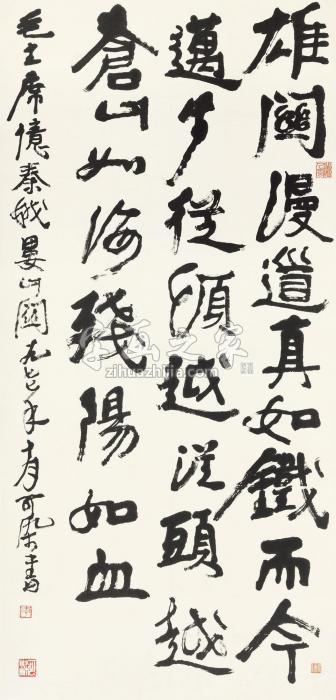 雄關漫道真如鐵而今
邁步從頭越從頭越
蒼山如海殘陽如血
毛主席憶秦娥婁山關一九七七年十月可染書
字画之家
zihuazhijia.com